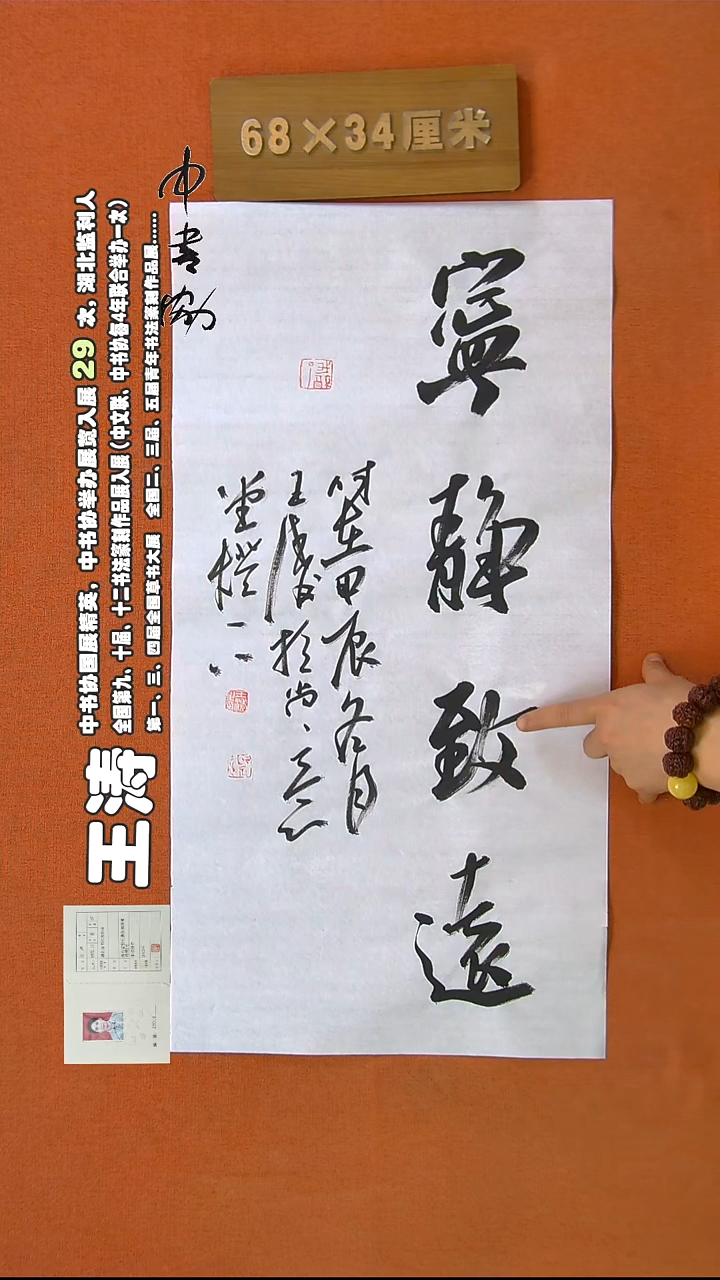 68×34厘米
中书协
寧靜致遠
时在甲辰冬月
王涛于尚
王涛
中书协国展精英，中书协举办展览入展 29 次，湖北监利人
全国第九、十届、十二书法篆刻作品展入展（中文联、中书协每4年联合举办一次）
第一、三、四届全国草书大展 全国二、三届、五届青年书法篆刻作品展......